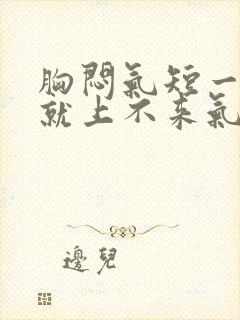 胸悶氣短一
就上不来氣
邊兒